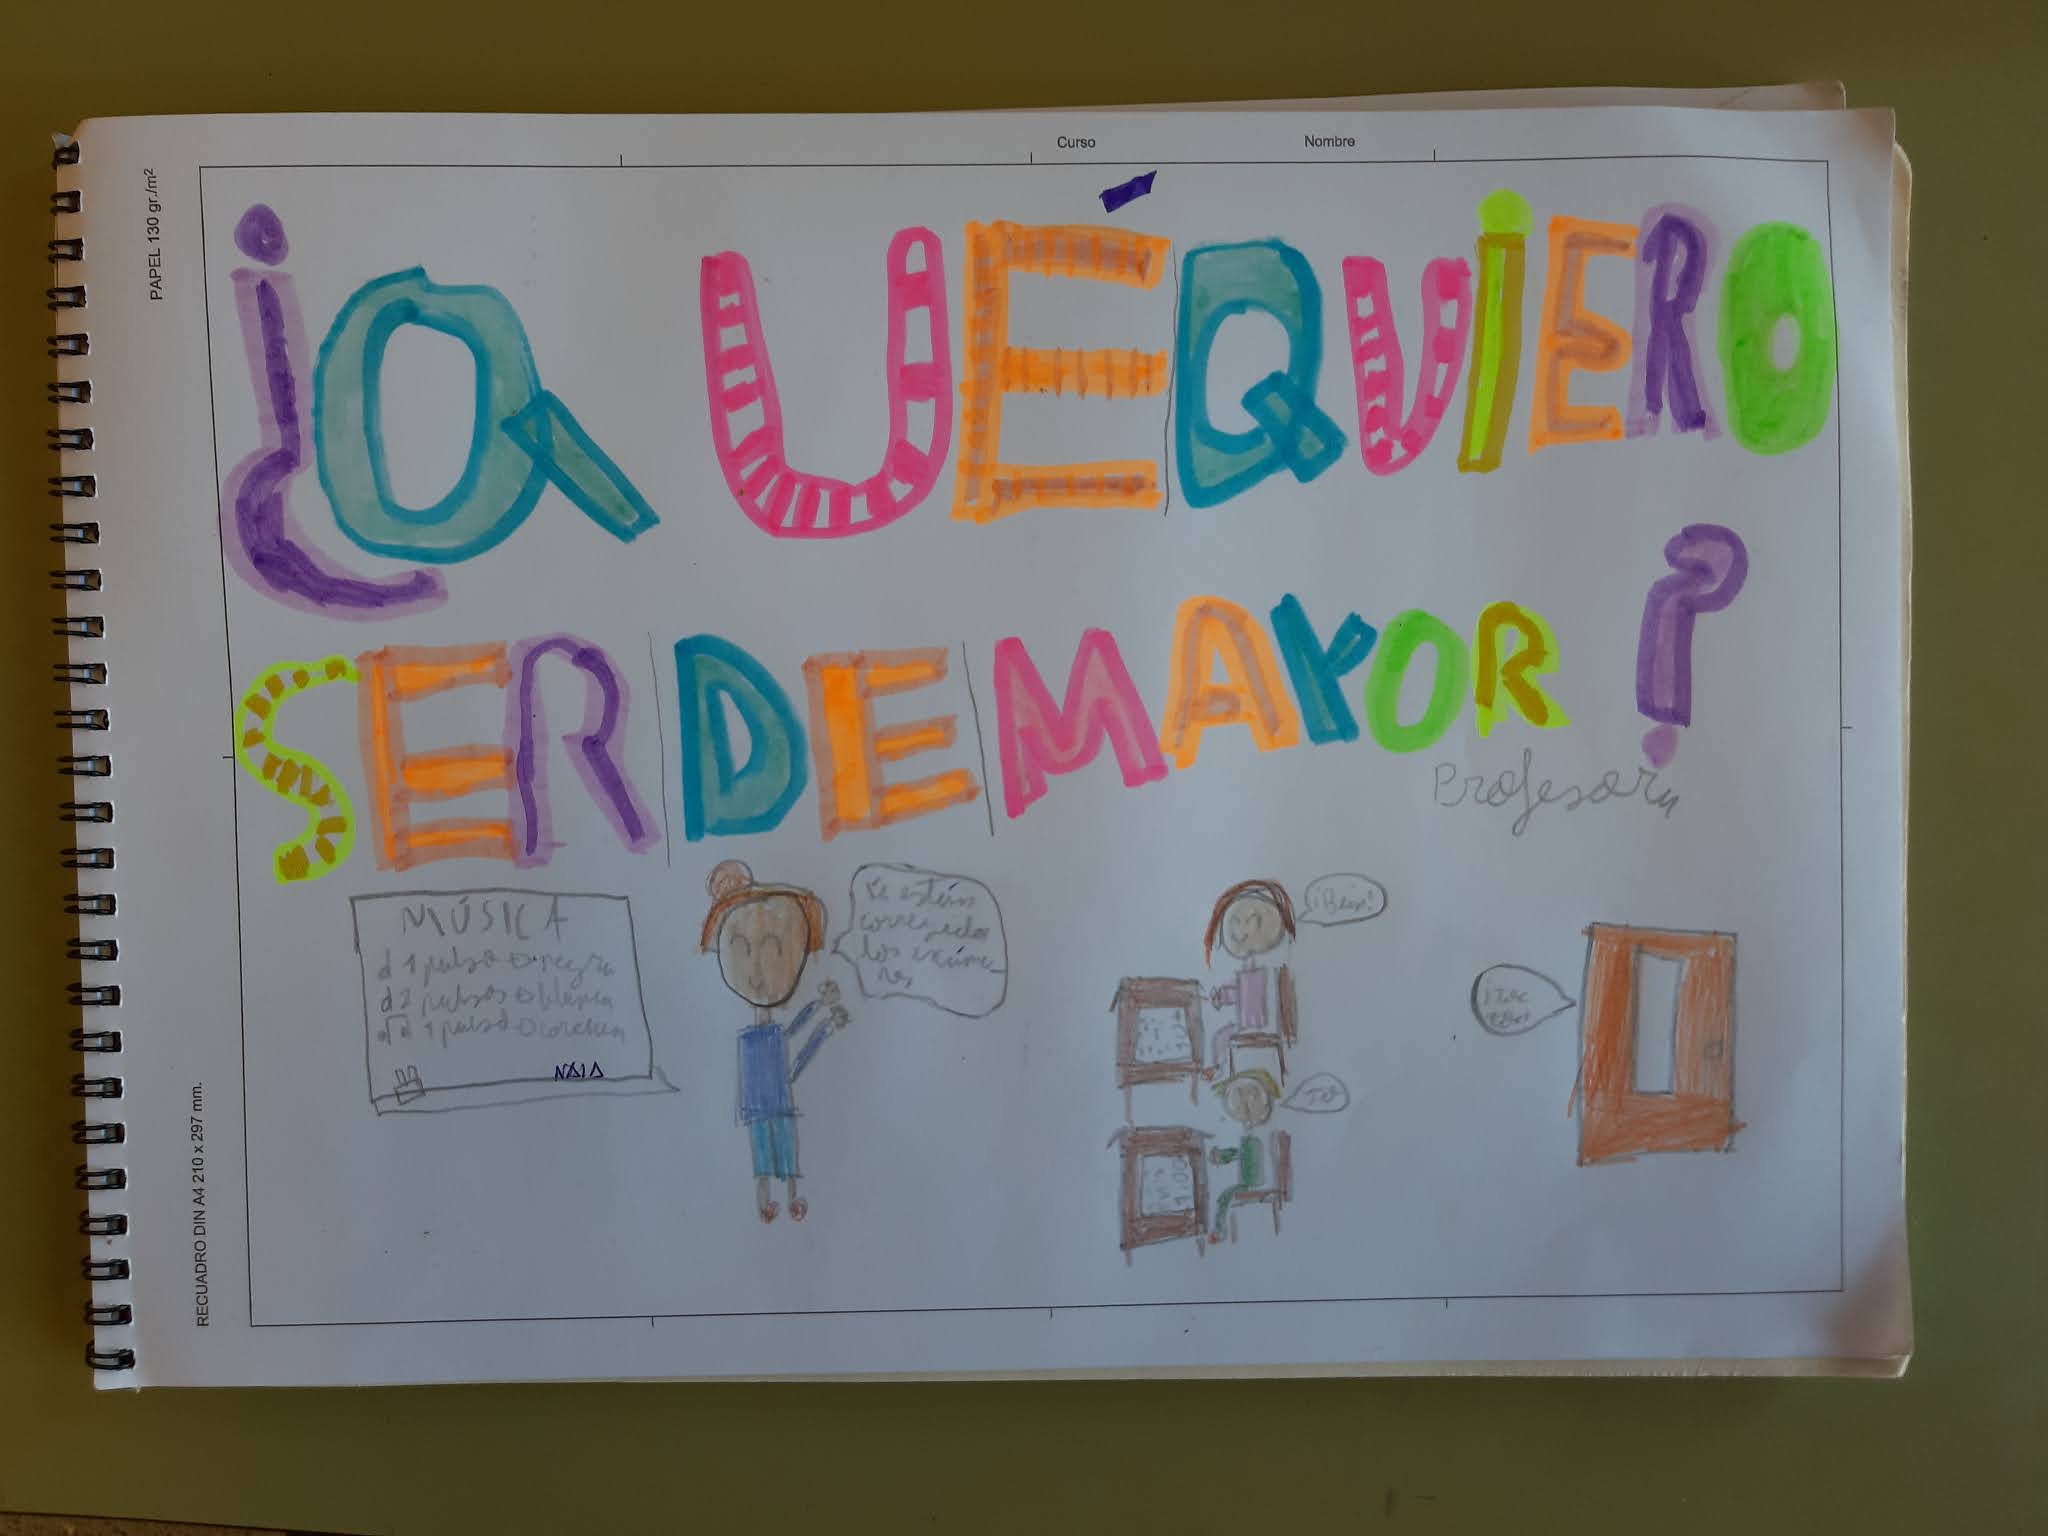 Curso Nombre
PAPEL 130 gr./m²
¿QUÉ QUIERO
SER DE MAYOR?
Profesora
MÚSICA
1 pulso negra
2 pulsos blanca
1 pulso corchea
NAIA
Ya están
corregidos
los exáme-
nes
¡Bien!
¡Toc
RECUADRO DIN A4 210 x 297 mm.